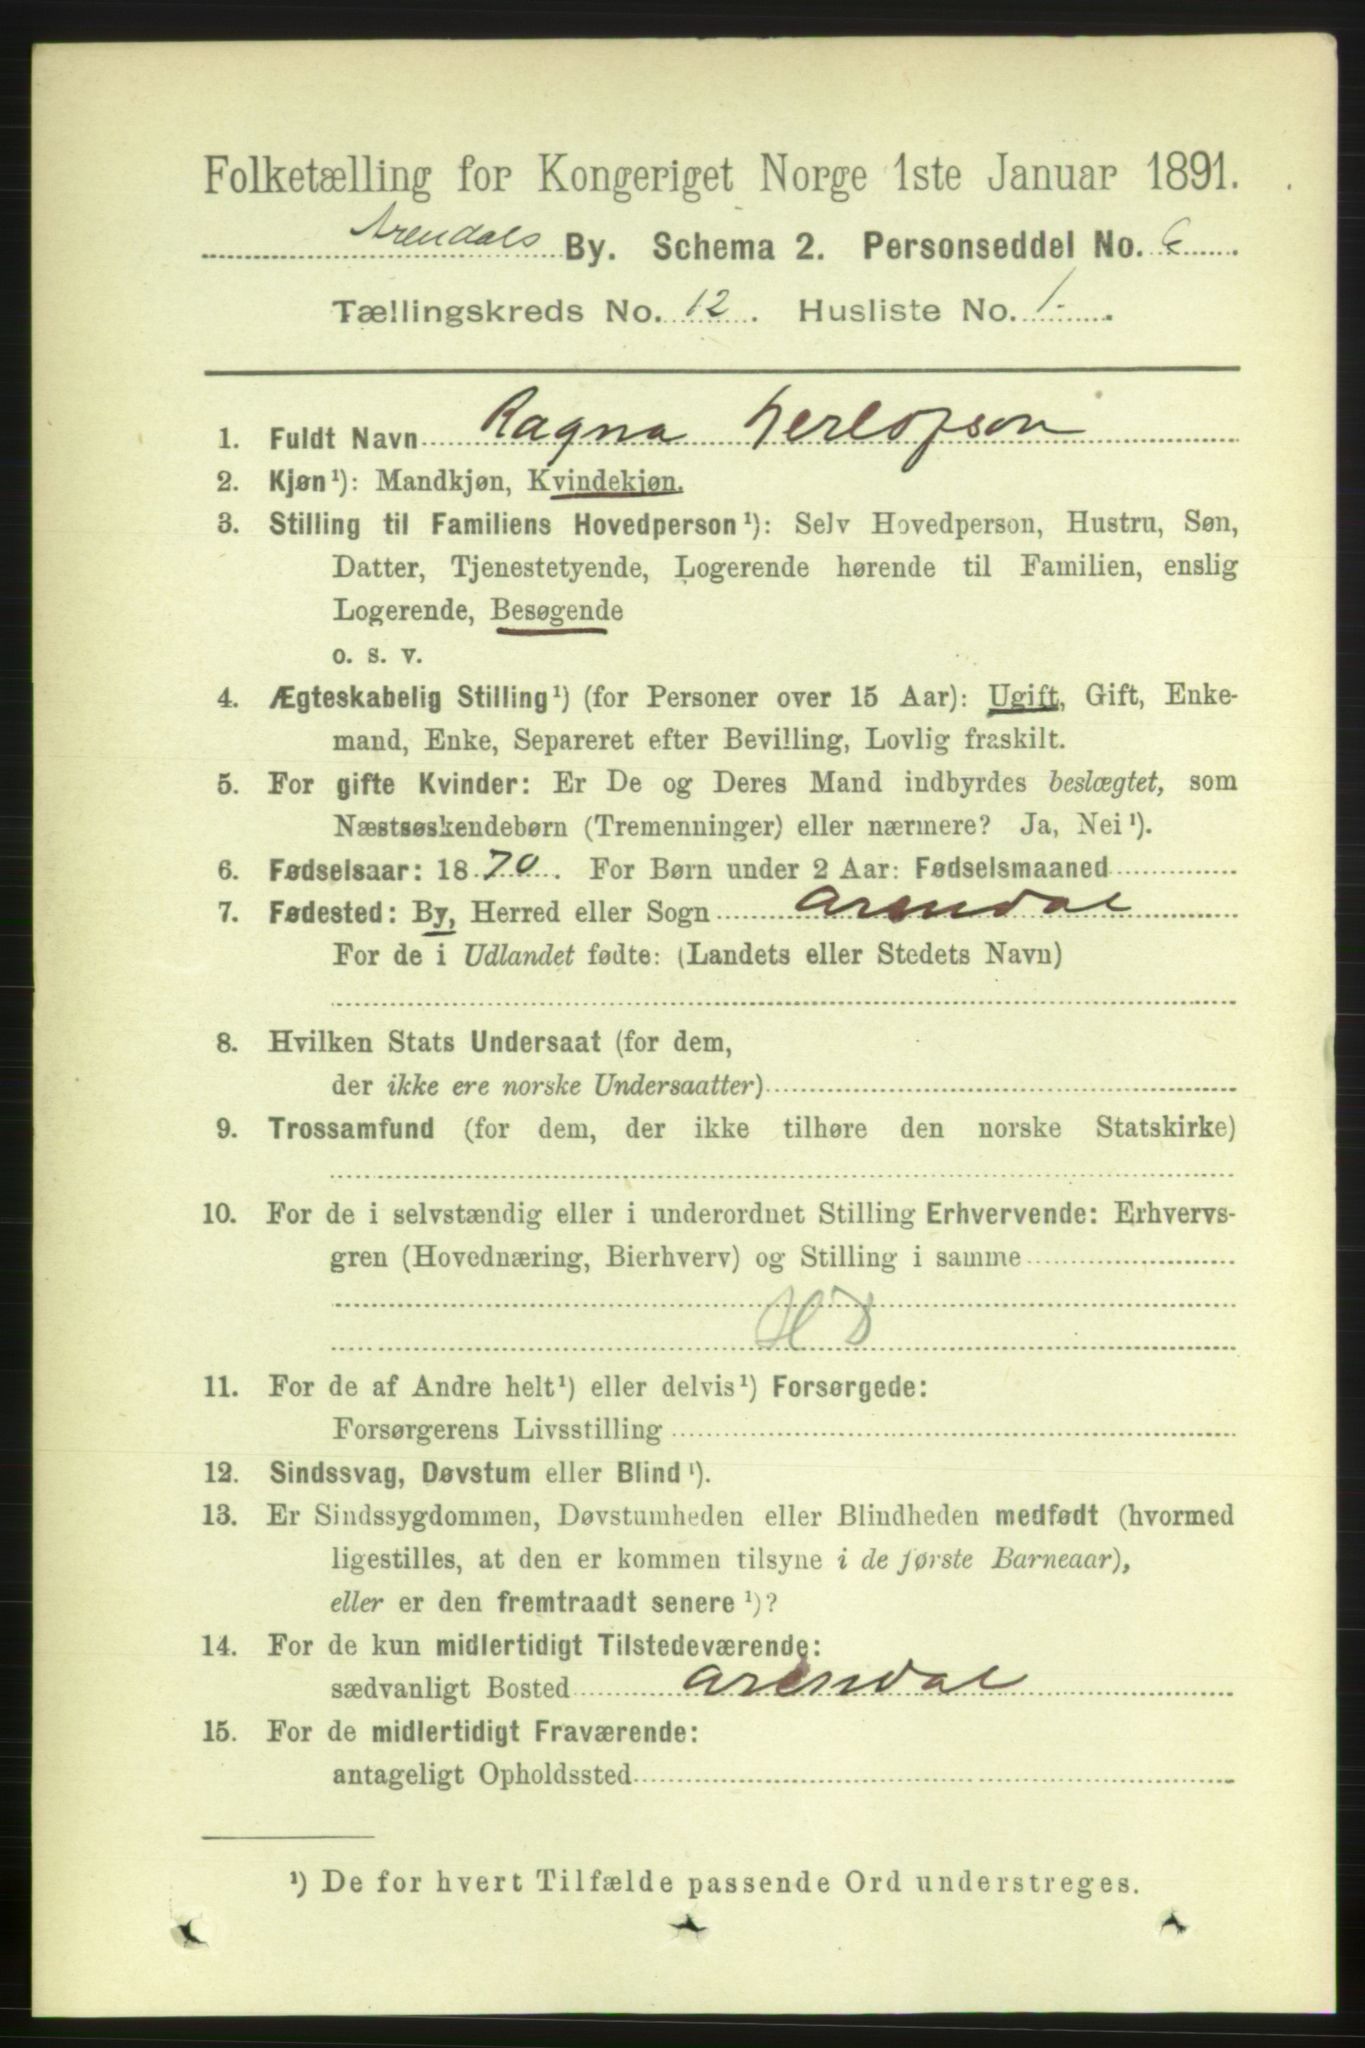 Folketælling for Kongeriget Norge 1ste Januar 1891.
Arendals By. Schema 2. Personseddel No. 6
Tællingskreds No. 12. Husliste No. 1.
1. Fuldt Navn Ragna Herlofson
2. Kjøn¹): Mandkjøn, Kvindekjøn.
3. Stilling til Familiens Hovedperson¹): Selv Hovedperson, Hustru, Søn,
Datter, Tjenestetyende, Logerende hørende til Familien, enslig
Logerende, Besøgende
o. s. v.
4. Ægteskabelig Stilling¹) (for Personer over 15 Aar): Ugift, Gift, Enke-
mand, Enke, Separeret efter Bevilling, Lovlig fraskilt.
5. For gifte Kvinder: Er De og Deres Mand indbyrdes beslægtet, som
Næstsøskendebørn (Tremenninger) eller nærmere? Ja, Nei¹).
6. Fødselsaar: 1870. For Børn under 2 Aar: Fødselsmaaned
7. Fødested: By, Herred eller Sogn Arendal
For de i Udlandet fødte: (Landets eller Stedets Navn)
8. Hvilken Stats Undersaat (for dem,
der ikke ere norske Undersaatter)
9. Trossamfund (for dem, der ikke tilhøre den norske Statskirke)
10. For de i selvstændig eller i underordnet Stilling Erhvervende: Erhvervs-
gren (Hovednæring, Bierhverv) og Stilling i samme
HD
11. For de af Andre helt¹) eller delvis¹) Forsørgede:
Forsørgerens Livsstilling
12. Sindssvag, Døvstum eller Blind¹).
13. Er Sindssygdommen, Døvstumheden eller Blindheden medfødt (hvormed
ligestilles, at den er kommen tilsyne i de første Barneaar),
eller er den fremtraadt senere¹)?
14. For de kun midlertidigt Tilstedeværende:
sædvanligt Bosted Arendal
15. For de midlertidigt Fraværende:
antageligt Opholdssted
¹) De for hvert Tilfælde passende Ord understreges.